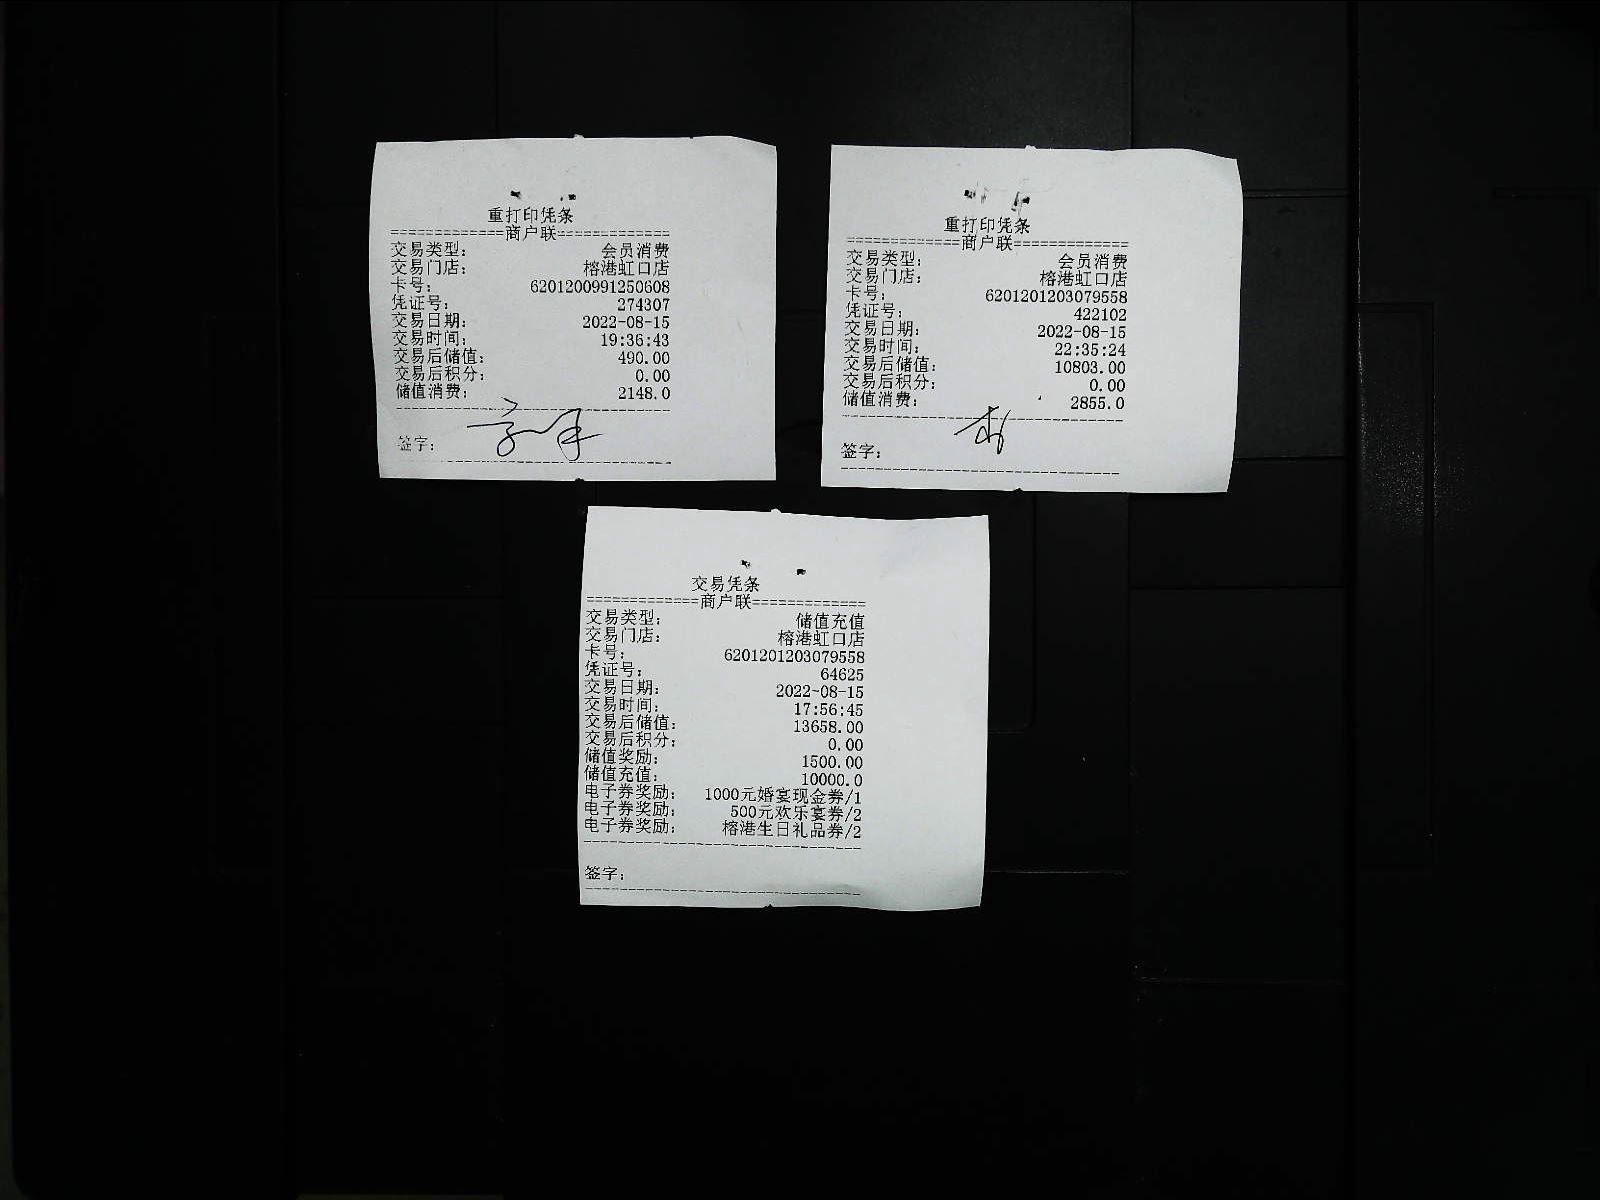 重打印凭条
=============商户联=============
交易类型: 会员消费
交易门店: 榕港虹口店
卡号: 6201200991250608
凭证号: 274307
交易日期: 2022-08-15
交易时间: 19:36:43
交易后储值: 490.00
交易后积分: 0.00
储值消费: 2148.0
签字:
重打印凭条
=============商户联=============
交易类型: 会员消费
交易门店: 榕港虹口店
卡号: 6201201203079558
凭证号: 422102
交易日期: 2022-08-15
交易时间: 22:35:24
交易后储值: 10803.00
交易后积分: 0.00
储值消费: 2855.0
签字:
交易凭条
=============商户联=============
交易类型: 储值充值
交易门店: 榕港虹口店
卡号: 6201201203079558
凭证号: 64625
交易日期: 2022-08-15
交易时间: 17:56:45
交易后储值: 13658.00
交易后积分: 0.00
储值奖励: 1500.00
储值充值: 10000.0
电子券奖励: 1000元婚宴现金券/1
电子券奖励: 500元欢乐宴券/2
电子券奖励: 榕港生日礼品券/2
签字: